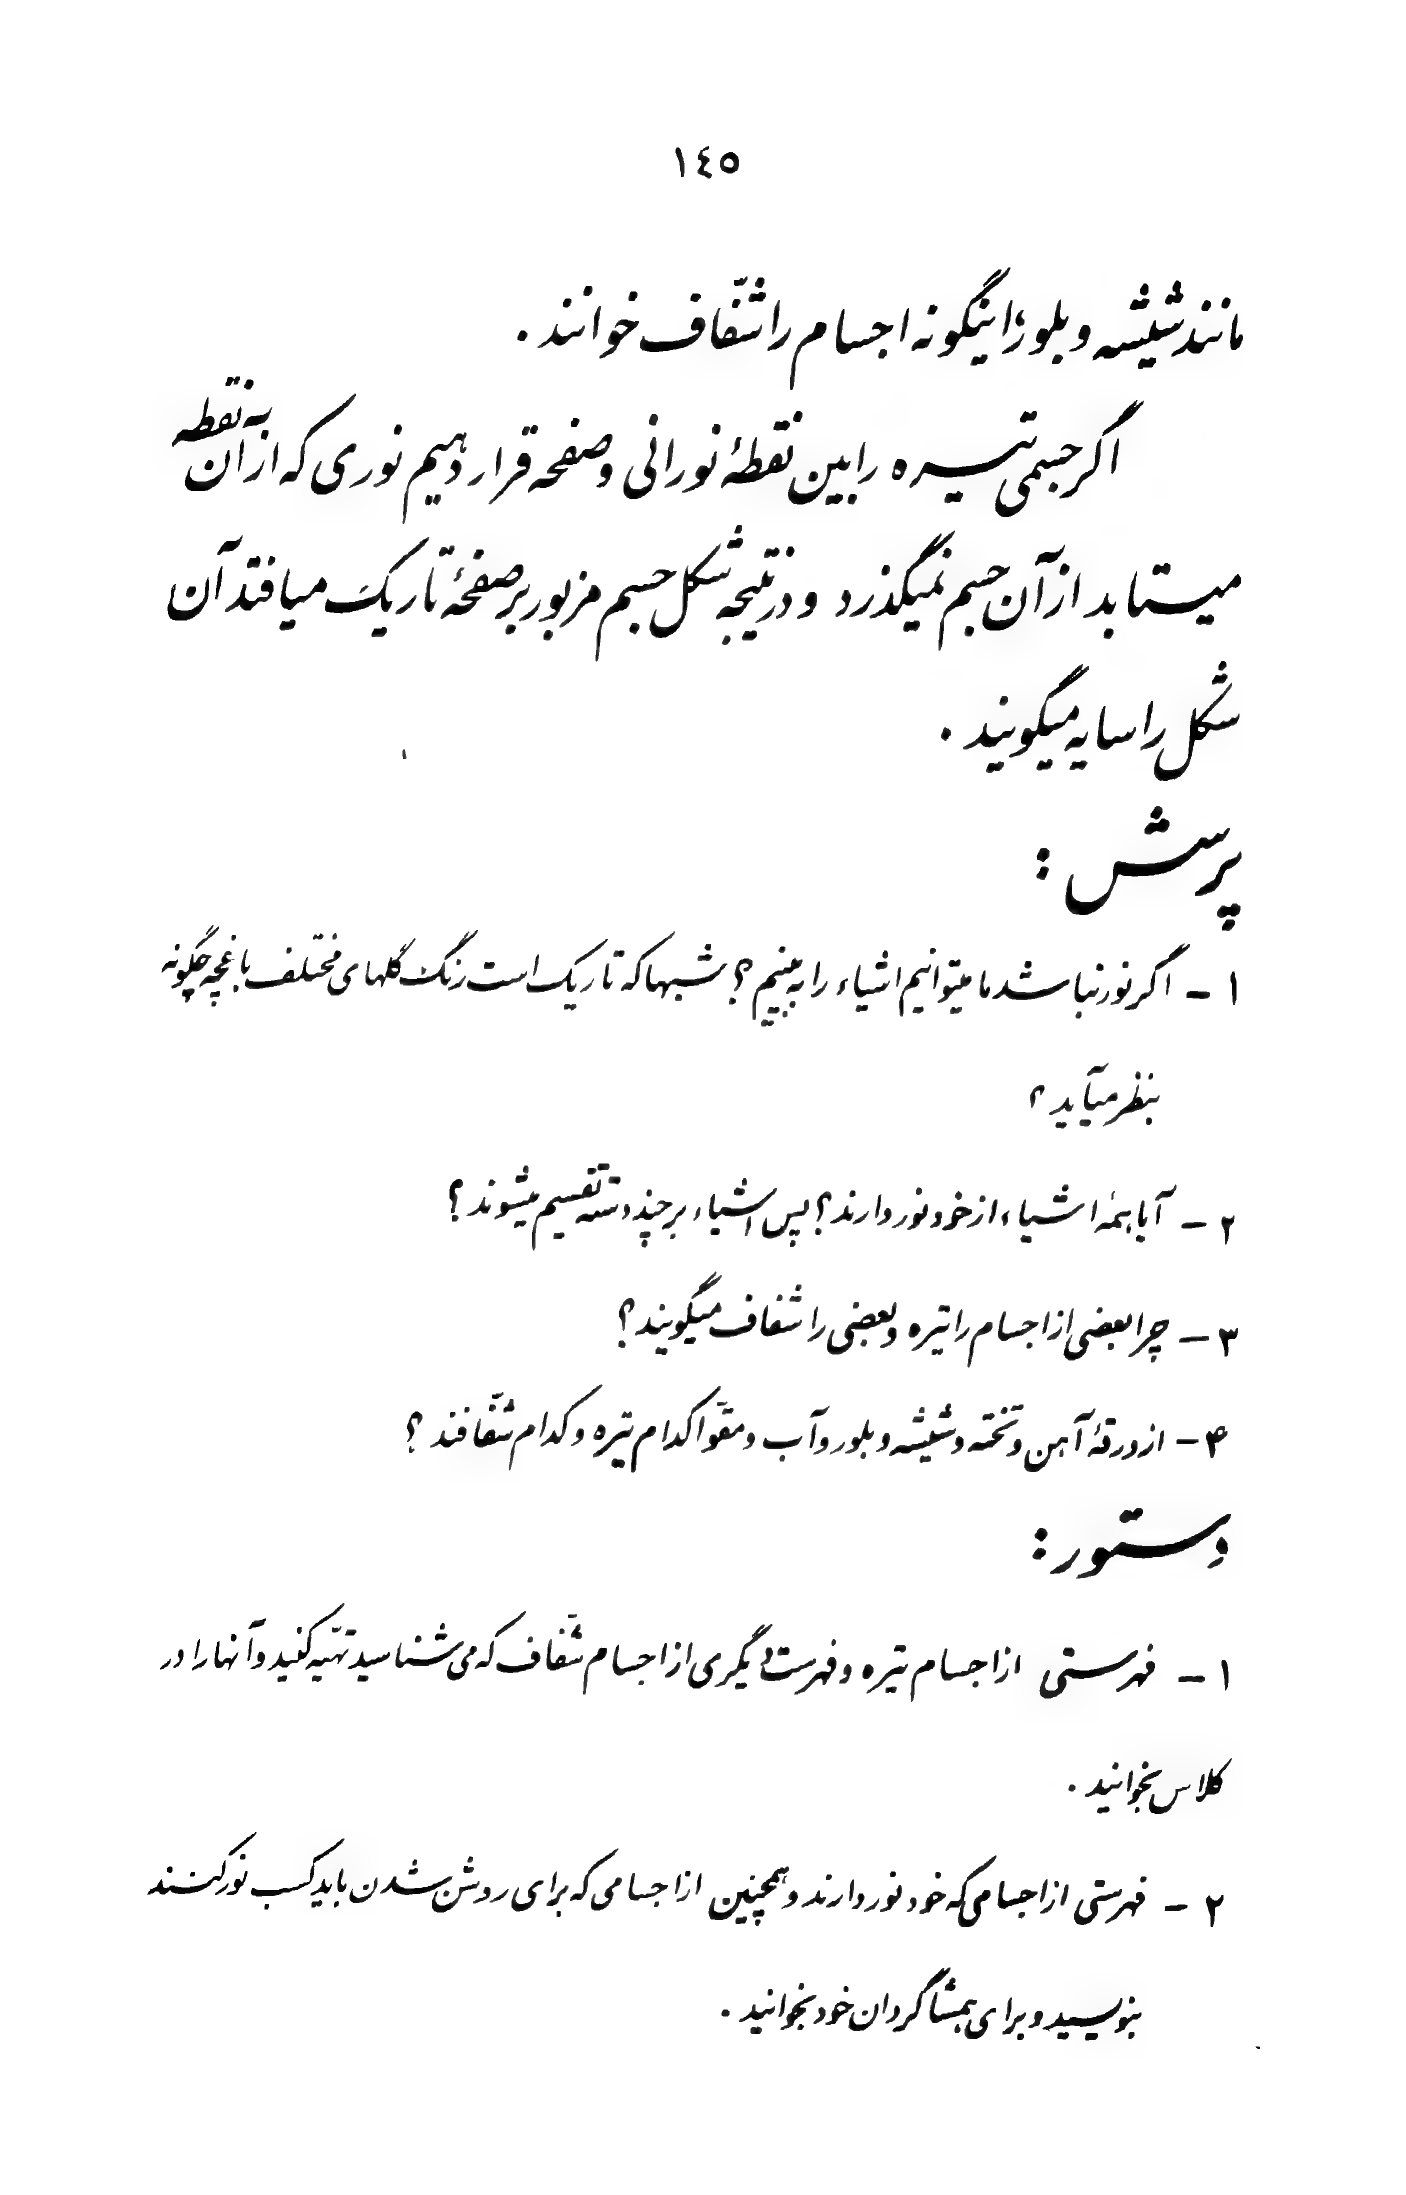 ١٤٥
مانند شیشه و بلور؛ اینگونه اجسام را شفّاف خوانند.
اگر جسمی تیره را بین نقطهٔ نورانی و صفحه قرار دهیم نوری که از آن نقطه به
میتابد از آن جسم نمیگذرد و در نتیجه شکل جسم مزبور بر صفحهٔ تاریک میافتد آن
شکل را سایه میگویند.
پرسش:
۱ - اگر نور نباشد ما میتوانیم اشیاء را به بینیم؟ شبها که تاریک است رنگ گلهای مختلف باغچه چگونه
بنظر میآید؟
۲ - آیا همهٔ اشیاء از خود نور دارند؟ پس اشیاء بر چند دسته تقسیم میشوند؟
۳ - چرا بعضی از اجسام را تیره و بعضی را شفاف میگویند؟
۴ - از ورقهٔ آهن و تخته و شیشه و بلور و آب و مقوّا کدام تیره و کدام شفّافند؟
دستور:
۱ - فهرستی از اجسام تیره و فهرست دیگری از اجسام شفّاف که می شناسید تهیّه کنید و آنها را در
کلاس بخوانید.
۲ - فهرستی از اجسامی که خود نور دارند و همچنین از اجسامی که برای روشن شدن باید کسب نور کنند
بنویسید و برای همشاگردان خود بخوانید.